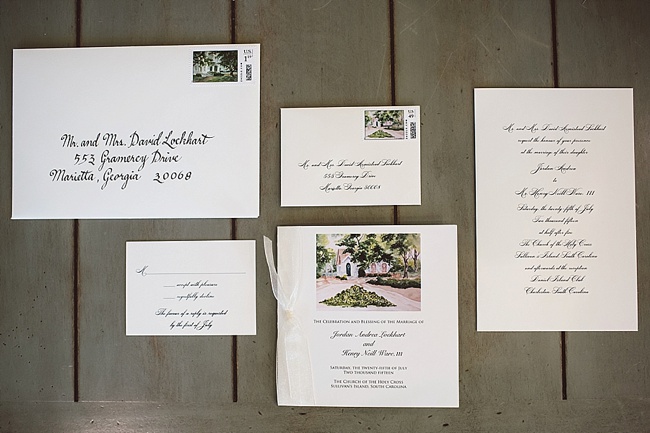 US
Mr. and Mrs. David Lockhart
553 Gramercy Drive
Marietta, Georgia 30068
US
49
Mr. and Mrs. David Armistead Lockhart
553 Gramercy Drive
Marietta Georgia 30068
M
accept with pleasure
regretfully decline
The favour of a reply is requested
by the first of July
The Celebration and Blessing of the Marriage of
Jordan Andrea Lockhart
and
Henry Neill Ware, III
Saturday, the twenty-fifth of July
Two thousand fifteen
The Church of the Holy Cross
Sullivan's Island, South Carolina
Mr. and Mrs. David Armistead Lockhart
request the honour of your presence
at the marriage of their daughter
Jordan Andrea
to
Mr. Henry Neill Ware III
Saturday, the twenty fifth of July
Two thousand fifteen
at half after five
The Church of the Holy Cross
Sullivan's Island, South Carolina
and afterwards at the reception
Daniel Island Club
Charleston, South Carolina